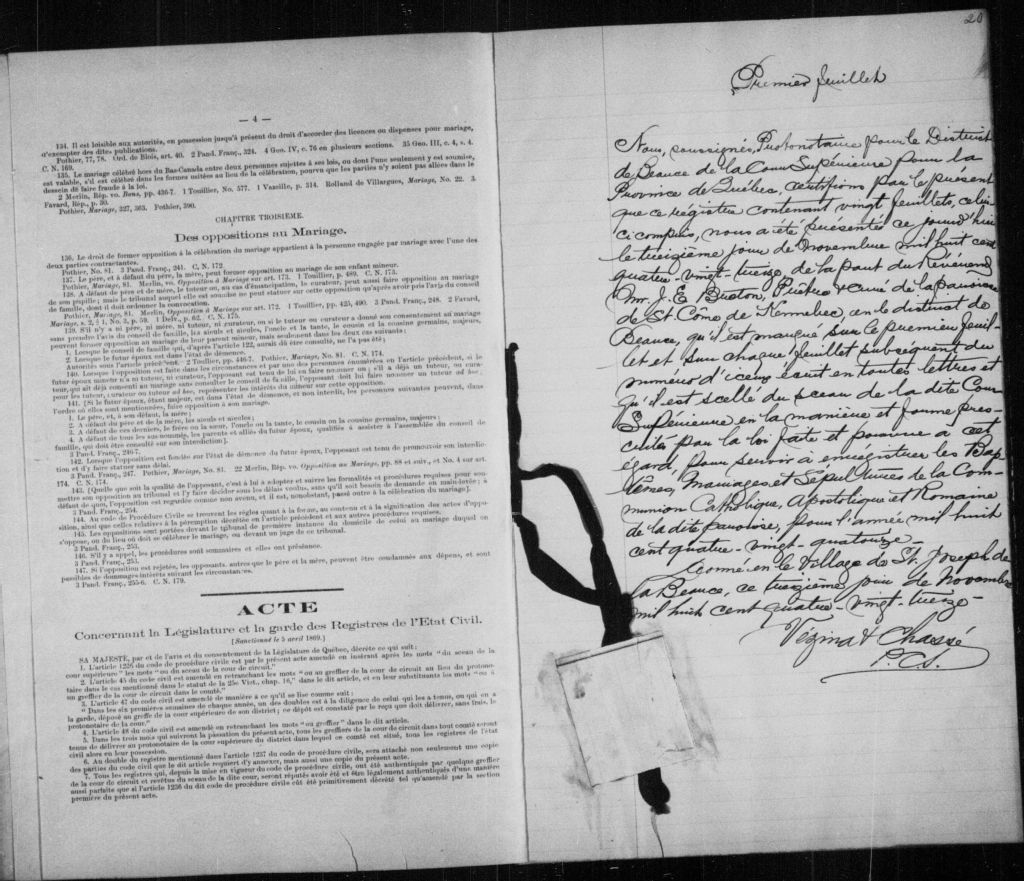 — 4 —
134. Il est loisible aux autorités, en possession jusqu'à présent du droit d'accorder des licences ou dispenses pour mariage,
d'exempter des dites publications.
Pothier, 77, 78. Ord. de Blois, art. 40. 2 Pand. Franç., 324. 4 Geo. IV, c. 76 en plusieurs sections. 35 Geo. III, c. 4, s. 4.
C. N. 169.
135. Le mariage célébré hors du Bas-Canada entre deux personnes sujettes à ses lois, ou dont l'une seulement y est soumise,
est valable, s'il est célébré dans les formes usitées au lieu de la célébration, pourvu que les parties n'y soient pas allées dans le
dessein de faire fraude à la loi.
2 Merlin, Rép. vo. Bans, pp. 436-7. 1 Touillier, No. 577. 1 Vazeille, p. 314. Rolland de Villargues, Mariage, No. 22. 3.
Favard, Rép., p. 30.
Pothier, Mariage, 327, 363. Pothier, 390.
CHAPITRE TROISIÈME.
Des oppositions au Mariage.
136. Le droit de former opposition à la célébration du mariage appartient à la personne engagée par mariage avec l'une des
deux parties contractantes.
Pothier, No. 81. 3 Pand. Franç., 241. C. N. 172.
137. Le père, et à défaut du père, la mère, peut former opposition au mariage de son enfant mineur.
Pothier, Mariage, 81. Merlin, vo. Opposition à Mariage sur art. 173. 1 Touillier, p. 489. C. N. 173.
138. A défaut de père et de mère, le tuteur, ou, au cas d'émancipation, le curateur, peut aussi faire opposition au mariage
de son pupille; mais le tribunal auquel elle est soumise ne peut statuer sur cette opposition qu'après avoir pris l'avis du conseil
de famille, dont il doit ordonner la convocation.
Pothier, Mariage, 81. Merlin, Opposition à Mariage sur art. 172. 1 Touillier, pp. 425, 490. 3 Pand. Franç., 248. 2 Favard,
Mariage, s. 2, § 1, No. 3, p. 59. 1 Delv., p. 62. C. N. 175.
139. S'il n'y a ni père, ni mère, ni tuteur, ni curateur, ou si le tuteur ou curateur a donné son consentement au mariage
sans prendre l'avis du conseil de famille, les aïeuls et aïeules, l'oncle et la tante, le cousin et la cousine germains, majeurs,
peuvent former opposition au mariage de leur parent mineur, mais seulement dans les deux cas suivants:
1. Lorsque le conseil de famille qui, d'après l'article 122, aurait dû être consulté, ne l'a pas été;
2. Lorsque le futur époux est dans l'état de démence.
Autorités sous l'article précédent. 2 Touillier, pp. 446-7. Pothier, Mariage, No. 81. C. N. 174.
140. Lorsque l'opposition est faite dans les circonstances et par une des personnes énumérées en l'article précédent, si le
futur époux mineur n'a ni tuteur, ni curateur, l'opposant est tenu de lui en faire nommer un; s'il a déjà un tuteur, ou cura-
teur, qui ait déjà consenti au mariage sans consulter le conseil de famille, l'opposant doit lui faire nommer un tuteur ad hoc,
pour les tuteur, curateur ou tuteur ad hoc, représenter les intérêts du mineur sur cette opposition.
141. [Si le futur époux, étant majeur, est dans l'état de démence, et non interdit, les personnes suivantes peuvent, dans
l'ordre où elles sont mentionnées, faire opposition à son mariage.
1. Le père, et, à son défaut, la mère;
2. A défaut du père et de la mère, les aïeuls et aïeules;
3. A défaut de ces derniers, le frère ou la sœur, l'oncle ou la tante, le cousin ou la cousine germains, majeurs;
4. A défaut de tous les sus-nommés, les parents et alliés du futur époux, qualifiés à assister à l'assemblée du conseil de
famille, qui doit être consulté sur son interdiction].
3 Pand. Franç., 246-7.
142. Lorsque l'opposition est fondée sur l'état de démence du futur époux, l'opposant est tenu de promouvoir son interdic-
tion et d'y faire statuer sans délai.
3 Pand. Franç., 247. Pothier, Mariage, No. 81. 22 Merlin, Rép. vo. Opposition au Mariage, pp. 88 et suiv., et No. 4 sur art.
174. C. N. 174.
143. [Quelle que soit la qualité de l'opposant, c'est à lui à adopter et suivre les formalités et procédures requises pour sou-
mettre son opposition au tribunal et l'y faire décider sous les délais voulus, sans qu'il soit besoin de demande en main-levée; à
défaut de quoi, l'opposition est regardée comme non avenue, et il est, nonobstant, passé outre à la célébration du mariage].
3 Pand. Franç., 254.
144. Au code de Procédure Civile se trouvent les règles quant à la forme, au contenu et à la signification des actes d'oppo-
sition, ainsi que celles relatives à la péremption décrétée en l'article précédent et aux autres procédures requises.
145. Les oppositions sont portées devant le tribunal de première instance du domicile de celui au mariage duquel on
s'oppose, ou du lieu où doit se célébrer le mariage, ou devant un juge de ce tribunal.
3 Pand. Franç., 253.
146. S'il y a appel, les procédures sont sommaires et elles ont préséance.
3 Pand. Franç., 253.
147. Si l'opposition est rejetée, les opposants, autres que le père et la mère, peuvent être condamnés aux dépens, et sont
passibles de dommages-intérêts suivant les circonstances.
3 Pand. Franç., 255-6. C. N. 179.
ACTE
Concernant la Législature et la garde des Registres de l'Etat Civil.
(Sanctionné le 5 avril 1869.)
SA MAJESTÉ, par et de l'avis et du consentement de la Législature de Québec, décrète ce qui suit:
1. L'article 1236 du code de procédure civile est par le présent acte amendé en insérant après les mots "du sceau de la
cour supérieure" les mots "ou du sceau de la cour de circuit."
2. L'article 45 du code civil est amendé en retranchant les mots "ou au greffier de la cour de circuit au lieu du protono-
taire dans le cas mentionné dans le statut de la 25e Vict., chap. 16," dans le dit article, et en leur substituant les mots "ou à
un greffier de la cour de circuit dans le comté."
3. L'article 47 du code civil est amendé de manière à ce qu'il se lise comme suit:
"Dans les six premières semaines de chaque année, un des doubles est à la diligence de celui qui les a tenus, ou qui en a
la garde, déposé au greffe de la cour supérieure de son district; ce dépôt est constaté par le reçu que doit délivrer, sans frais, le
protonotaire de la cour."
4. L'article 48 du code civil est amendé en retranchant les mots "ou greffier" dans le dit article.
5. Dans les trois mois qui suivront la passation du présent acte, tous les greffiers de la cour de circuit dans tout comté seront
tenus de délivrer au protonotaire de la cour supérieure du district dans lequel ce comté est situé, tous les registres de l'état
civil alors en leur possession.
6. Au double du registre mentionné dans l'article 1237 du code de procédure civile, sera attaché non seulement une copie
des parties du code civil que le dit article requiert d'y annexer, mais aussi une copie du présent acte.
7. Tous les registres qui, depuis la mise en vigueur du code de procédure civile, ont été authentiqués par quelque greffier
de la cour de circuit et revêtus du sceau de la dite cour, seront réputés avoir été et être légalement authentiqués d'une manière
aussi parfaite que si l'article 1236 du dit code de procédure civile eût été primitivement décrété tel qu'amendé par la section
première du présent acte.
20
Premier feuillet
Nous, soussignés, Protonotaire pour le District
de Beauce de la Cour Supérieure pour la
Province de Québec, certifions par le présent
que ce régistre contenant vingt feuillets, celui-
ci compris, nous a été présenté ce jourd'hui
le treizième jour de Novembre mil huit cent
quatre-vingt-treize de la part du Révérend
Mr. J. E. Buston, Prêtre & curé de la paroisse
de St. Côme de Kennebec, en le district de
Beauce, qu'il est marqué sur le premier feuil-
let et sur chaque feuillet subséquent du
numéro d'iceux écrit en toutes lettres et
qu'il est scellé du sceau de la dite Cour
Supérieure en la manière et forme pres-
crites par la loi faite et pourvue à cet
égard, pour servir à enregistrer les Bap
têmes, Mariages et Sépultures de la Com-
munion Catholique, Apostolique et Romaine
de la dite paroisse, pour l'année mil huit
cent quatre-vingt-quatorze.-
Donné en le Village de St. Joseph de
la Beauce, ce treizième jour de Novembre
mil huit cent quatre-vingt-treize-
Vézina & Chassé
P.C.S.